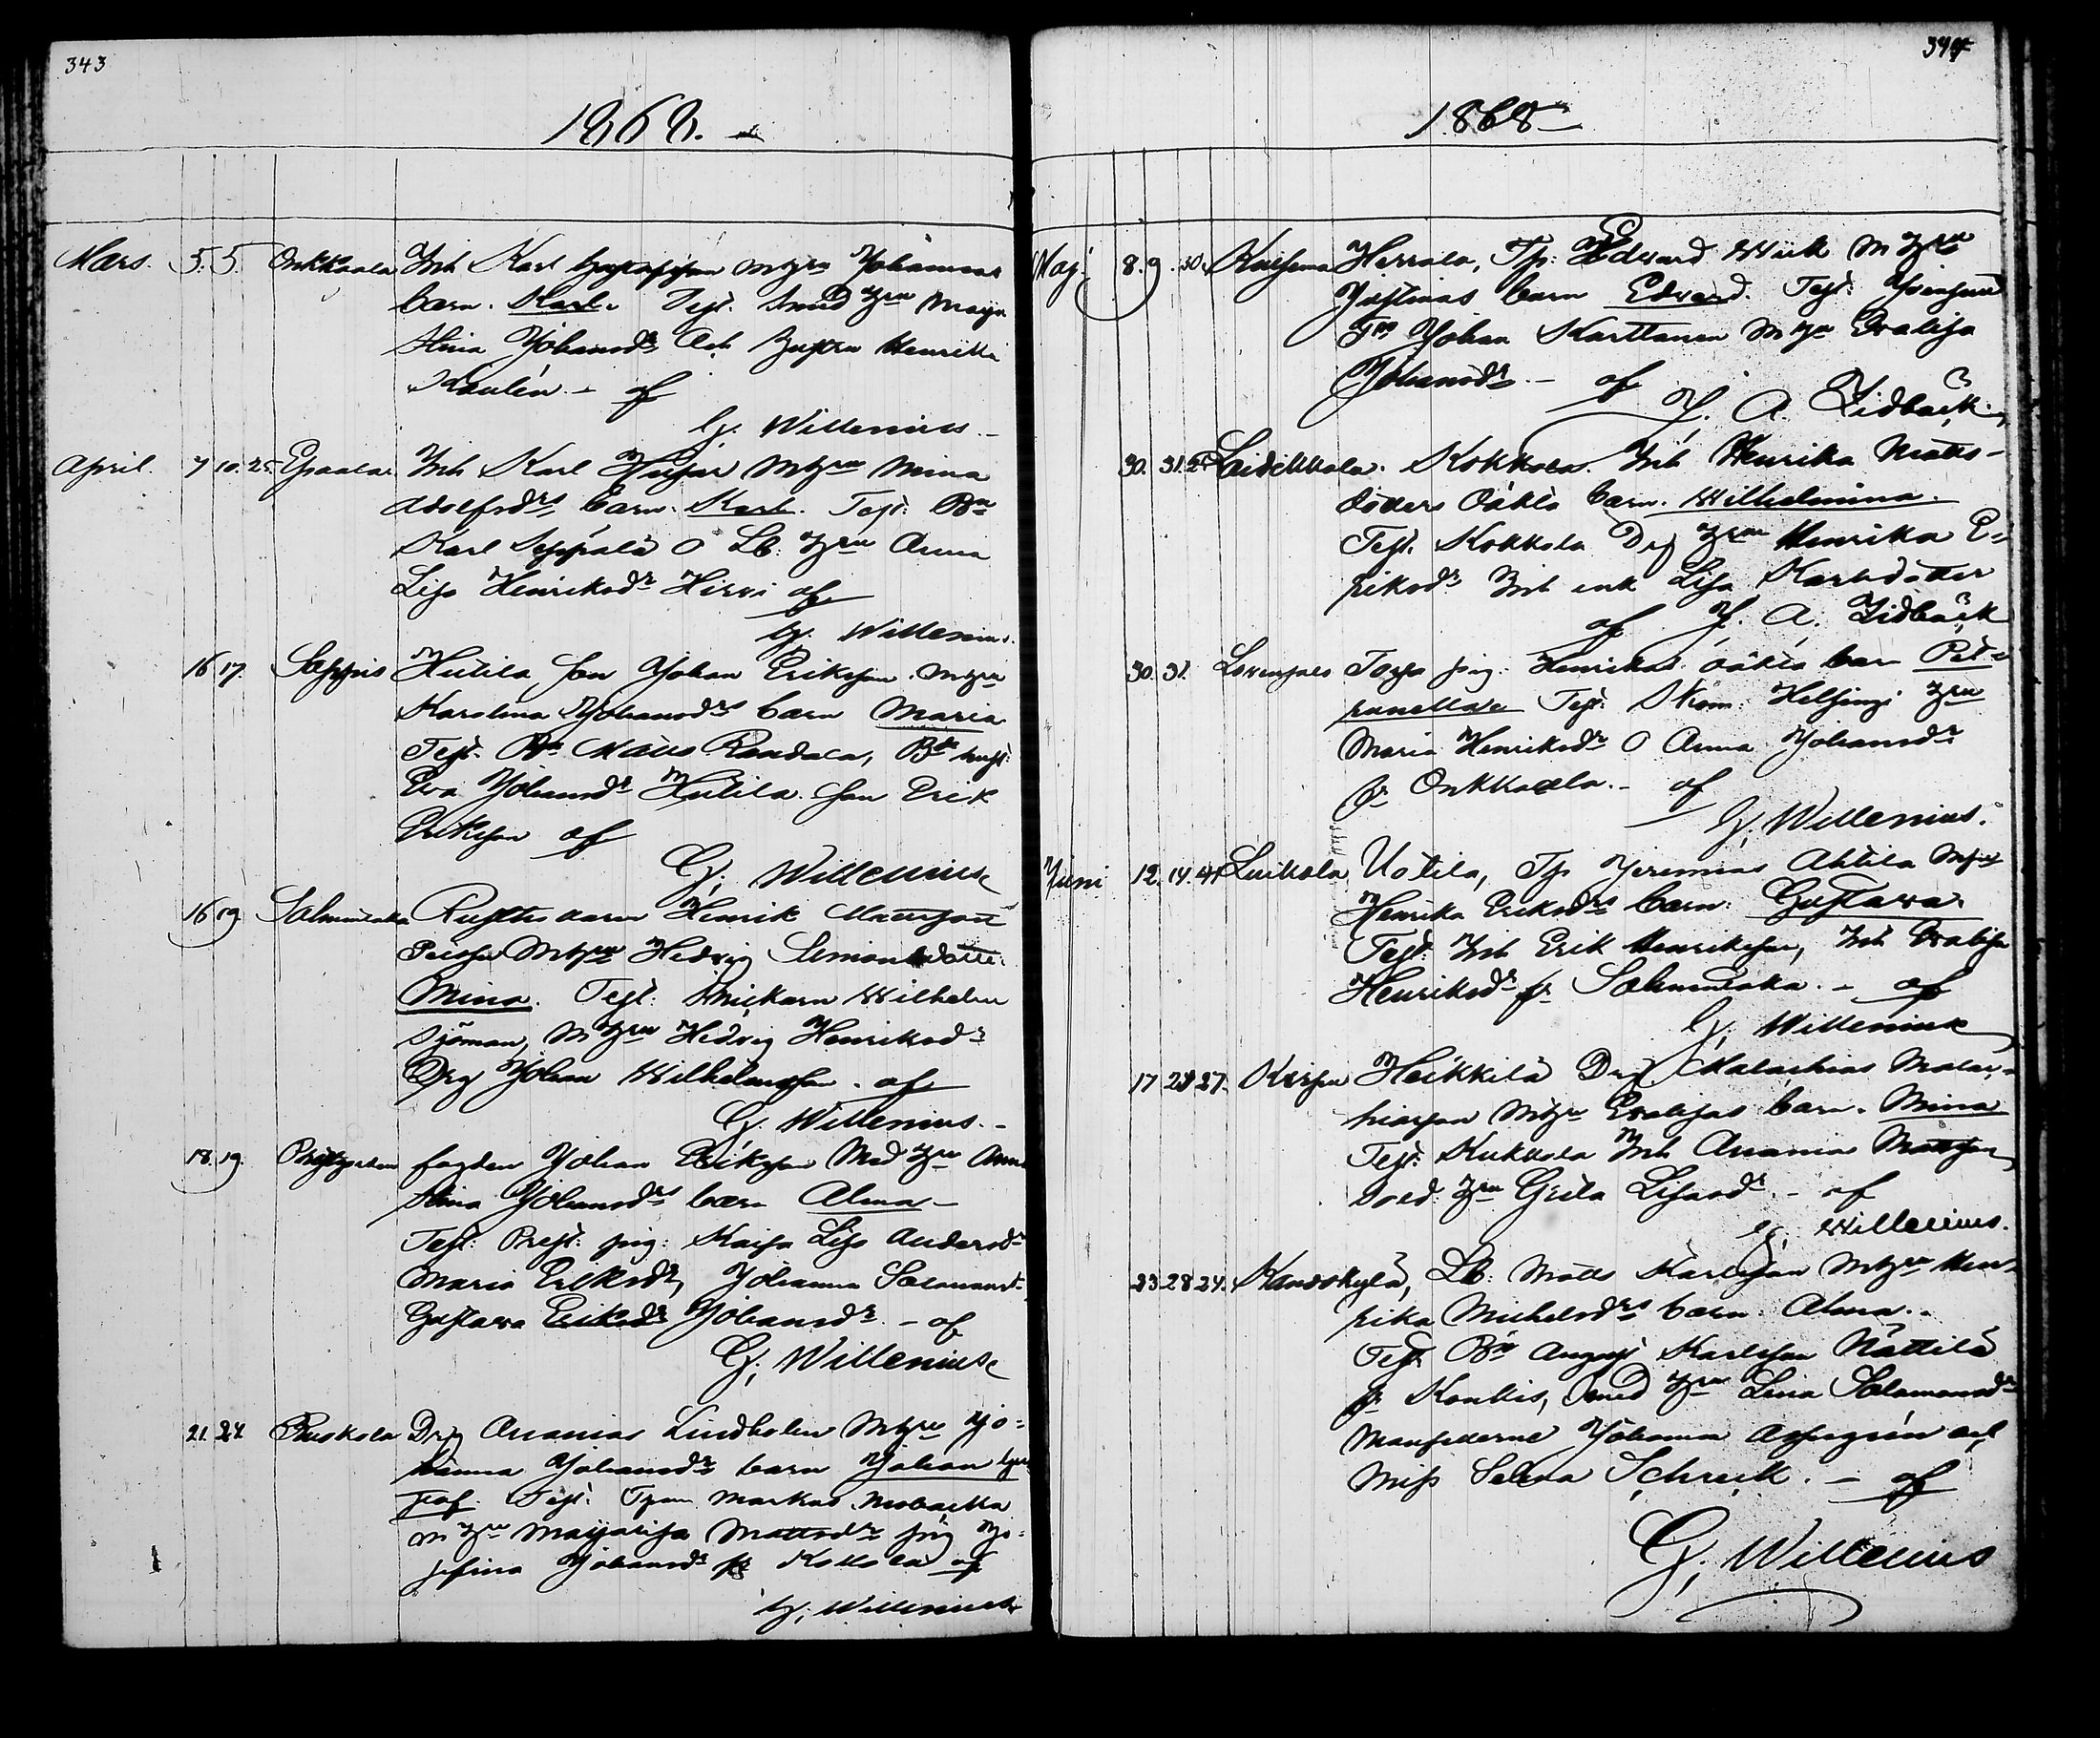 343
1868.
Mars. 5. 5. Onkkaala Inh Karl Gustafsson m hu Johannas
barn. Karl. Test. Smed hu Maja
Stina Johansdr Och hustru Henrika
Kaulin. - af
G. Willenius.
April. 7 10. 25. Epaala Inh Karl m hu Mina
Adolfsdrs barn. Karl. Test. Bn
Karl Seppälä o Lb: hu Anna
Lisa Henriksdr Hirvi af
G. Willenius.
16 17. Seppis Hutila son Johan Eriksson. m hu
Karolina Johansdrs barn Maria
Test. Bn Matts Randala, Bde hust:
Eva Johansdr Hutila son Erik
Eriksson af
G. Willenius
16 19 Salmentaka Henrik Mattsson
m hu Hedvig Simonsdotter
Mina. Test: Snickarn Wilhelm
Sjöman, m hu Hedvig Henriksdr
Drg Johan Wilhelmsson. af
G. Willenius.
18. 19. Prestgården fogden Johan Eriksson Med hu Anna
Stina Johansdrs barn Alma
Test: Prest: pig: Kaisa Lisa Andersdr
Maria Eriksdr, Johanna Salomonsdr
Gustava Eriksdr Johansdr. - af
G. Willenius
21. 24. Puskola Drg Ananias Lindholm m hu Jo=
hanna Johansdrs barn Johan Gus
taf. Test. Markus
m hu Majalisa Mattsdr pig Jo=
sefina Johansdr fr Kokkola af
G. Willenius
344
1868
Maj. 8. 9. 30. Kaitsema Herrala, Tp: Edvard Wiik m hu
Justinas barn Edvard. Test:
Tp Johan Karttunen m hu Evalisa
Johansdr. - af
J. A. Lidbäck
30. 31. Laitikkala. Kokkola. Inh Henrika Matts-
dotters oäkta barn. Wilhelmina.
Test. Kokkola Drg hu Henrika E=
riksdr Inh enk Lisa Karlsdotter
af J. A. Lidbäck
30. 31. Torpa pig: Henrikas oäkta barn Pet=
ronella Test: Helsingi hu
Maria Henriksdr o Anna Johansdr
fr Onkkaala. - af
G. Willenius.
Juni 12. 14. 41 Luikala Uotila, Tp Jeremias Ahtila m hu
Henrika Eriksdrs barn: Gustava.
Test: Inh Erik Henriksson, Inh Evalisa
Henriksdr fr Salmentaka. - af
G. Willenius
17 28 27. Heikkilä Drg Malachias Malac=
hiasson m hu Evalisas barn. Mina
Test. Kukkola Inh Ananias Mattsson
Sold. hu Greta Lisa - af
G. Willenius.
23. 28 24. Lb: Matts Karlsson m hu Hen=
rika Michelsdrs barn. Alma.
Test. Bn August Karlsson Mattila
fr Kantis, Smed hu Lina Salomonsdr
Johanna och
Miss Selma Schreck. - af
G. Willenius